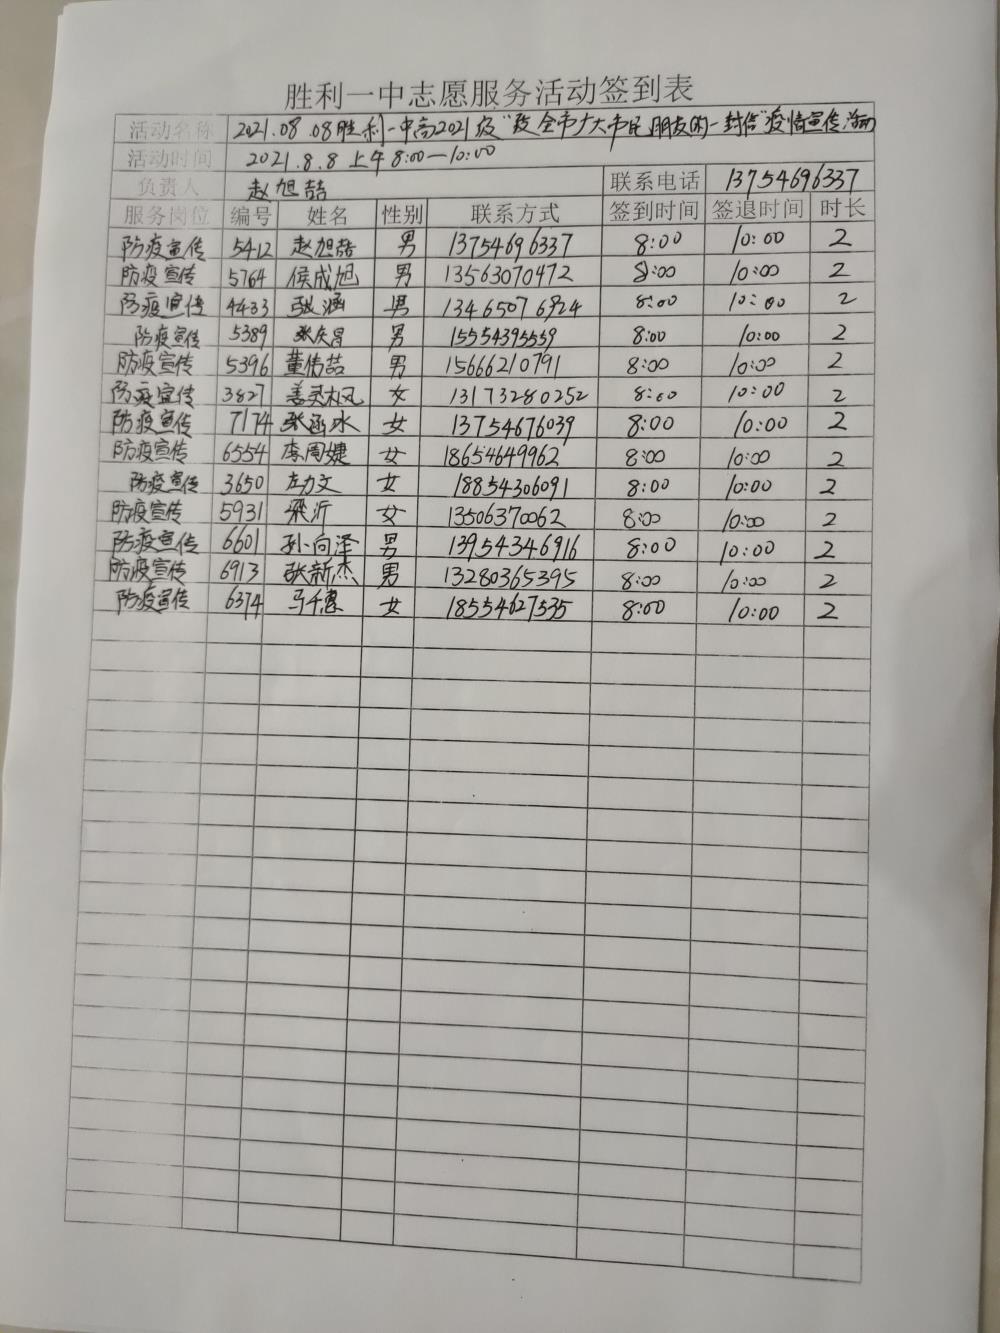 胜利一中志愿服务活动签到表
活动名称 2021.08.08胜利一中高2021级"致全市广大市民朋友的一封信"疫情宣传活动
活动时间 2021.8.8 上午 8:00—10:00
负责人 赵旭喆 联系电话 13754696337
服务岗位 编号 姓名 性别 联系方式 签到时间 签退时间 时长
防疫宣传 5412 赵旭喆 男 13754696337 8:00 10:00 2
防疫宣传 5764 侯成旭 男 13563070472 8:00 10:00 2
防疫宣传 4433 张涵 男 13465076924 8:00 10:00 2
防疫宣传 5389 张庆昌 男 15554395559 8:00 10:00 2
防疫宣传 5396 董倩喆 男 15666210791 8:00 10:00 2
防疫宣传 3827 姜灵枫 女 13173280252 8:00 10:00 2
防疫宣传 7174 张函冰 女 13754676039 8:00 10:00 2
防疫宣传 6554 李周婕 女 18654649962 8:00 10:00 2
防疫宣传 3650 左力文 女 18854306091 8:00 10:00 2
防疫宣传 5931 梁沂 女 13506370062 8:00 10:00 2
防疫宣传 6601 孙向泽 男 13954346916 8:00 10:00 2
防疫宣传 6913 张新杰 男 13280365395 8:00 10:00 2
防疫宣传 6374 马千惠 女 18554627535 8:00 10:00 2